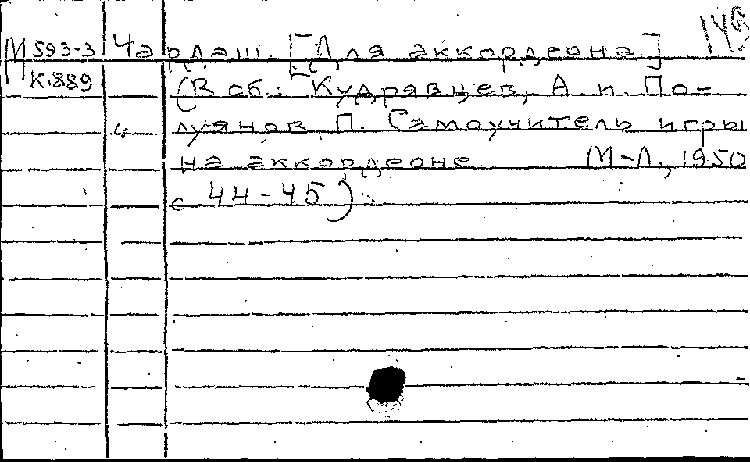 М 593-3 Чардаш. [Для аккордеона.]
К.889 (В сб.: Кудрявцев, А. и По-
луянов, П. Самоучитель игры
на аккордеоне М-Л., 1950
с 44-45).